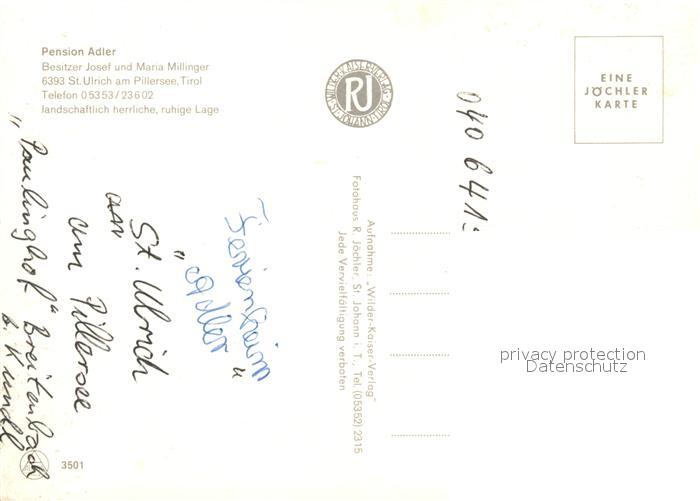 Pension Adler
Besitzer Josef und Maria Millinger
6393 St. Ulrich am Pillersee, Tirol
Telefon 05353/23602
landschaftlich herrliche, ruhige Lage
WILDER-KAISER-VERLAG
RJ
ST. JOHANN-TIROL
EINE
JÖCHLER
KARTE
040 641.-
Ferienheim
"Adler"
St. Ulrich
am Pillersee
"Paulinghof" Breitenbach
b. Kundl
Aufnahme: „Wilder-Kaiser-Verlag"
Fotohaus R. Jöchler, St. Johann i. T., Tel. (05352) 2315
Jede Vervielfältigung verboten
privacy protection
Datenschutz
3501